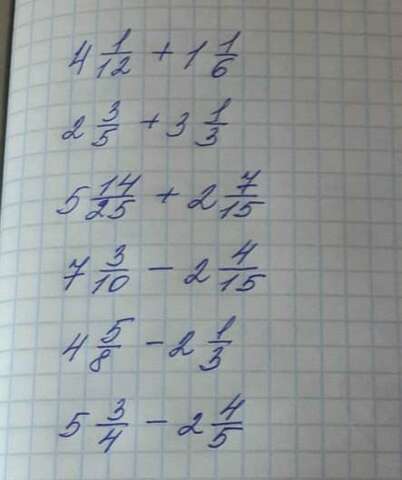 4 1/12 + 1 1/6
2 3/5 + 3 1/3
5 14/25 + 2 7/15
7 3/10 - 2 4/15
4 5/8 - 2 1/3
5 3/4 - 2 4/5